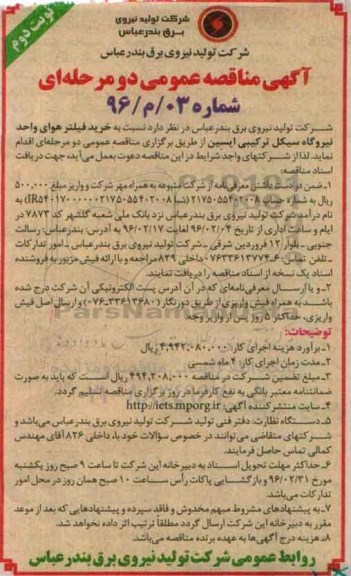 نوبت دوم
شرکت تولید نیروی
برق بندرعباس
شرکت تولید نیروی برق بندرعباس
آگهی مناقصه عمومی دو مرحله‌ای
شماره ۹۶/م/۰۳
شرکت تولید نیروی برق بندرعباس در نظر دارد نسبت به خرید فیلتر هوای واحد
نیروگاه سیکل ترکیبی ایسین از طریق برگزاری مناقصه عمومی دو مرحله‌ای اقدام
نماید. لذا از شرکتهای واجد شرایط در این مناقصه دعوت بعمل می‌آید، جهت دریافت
اسناد مناقصه:
۱ـ ضمن در دست داشتن معرفی‌نامه از شرکت متبوعه به همراه مهر شرکت و واریز مبلغ ۵۰۰,۰۰۰
ریال به شماره حساب ۲۱۷۵۰۵۵۴۰۲۰۰۸ (شبا
نام درآمد شرکت تولید نیروی برق بندرعباس نزد بانک ملی شعبه گلشهر کد ۷۸۷۳ در
ایام و ساعت اداری از تاریخ ۹۶/۰۲/۰۴ لغایت ۹۶/۰۲/۱۷ به آدرس: بندرعباس: رسالت
جنوبی ـ بلوار ۱۲ فروردین شرقی ـ شرکت تولید نیروی برق بندرعباس ـ امور تدارکات
ـ تلفن تماس ۶ـ۰۷۶۳۳۶۱۳۷۷۴ داخلی ۸۳۹ مراجعه و با ارائه فیش مزبور به فروشنده
اسناد یک نسخه از اسناد مناقصه را دریافت نمایند.
۲ـ و یا ارسال معرفی‌نامه‌ای که در آن آدرس پست الکترونیکی آن شرکت درج شده
باشد به همراه فیش واریزی از طریق دورنگار (۳۳۶۱۳۶۸۰ـ۰۷۶) و ارسال اصل فیش
واریزی، حداکثر ۵ روز پس از واریز وجه.
توضیحات:
۱ـ برآورد هزینه اجرای کار: ۴,۹۴۲,۰۸۰,۰۰۰ ریال
۲ـ مدت زمان اجرای کار: ۴ ماه شمسی
۳ـ مبلغ تضمین شرکت در مناقصه ۴۹۴,۲۰۸,۰۰۰ ریال است که باید به صورت
ضمانتنامه معتبر بانکی به نفع کارفرما در روز برگزاری مناقصه تسلیم گردد.
۴ـ سایت منتشر کننده آگهی: http://iets.mporg.ir
۵ـ دستگاه نظارت: دفتر فنی تولید شرکت تولید نیروی برق بندرعباس می‌باشد و
شرکتهای متقاضی می‌توانند در خصوص سؤالات خود با، داخلی ۸۲۶ آقای مهندس
کمالی تماس حاصل فرمایند.
۶ـ حداکثر مهلت تحویل اسناد به دبیرخانه این شرکت تا ساعت ۹ صبح روز یکشنبه
مورخ ۹۶/۰۲/۳۱ و بازگشایی پاکات رأس ساعت ۱۰ صبح همان روز در محل امور
تدارکات می‌باشد.
۷ـ به پیشنهادهای مشروط مبهم مخدوش و فاقد سپرده و پیشنهادهایی که بعد از موعد
مقرر به دبیرخانه این شرکت ارسال گردد مطلقاً ترتیب اثر داده نخواهد شد.
۸ـ هزینه درج آگهی‌ها به عهده برنده مناقصه می‌باشد.
روابط عمومی شرکت تولید نیروی برق بندرعباس